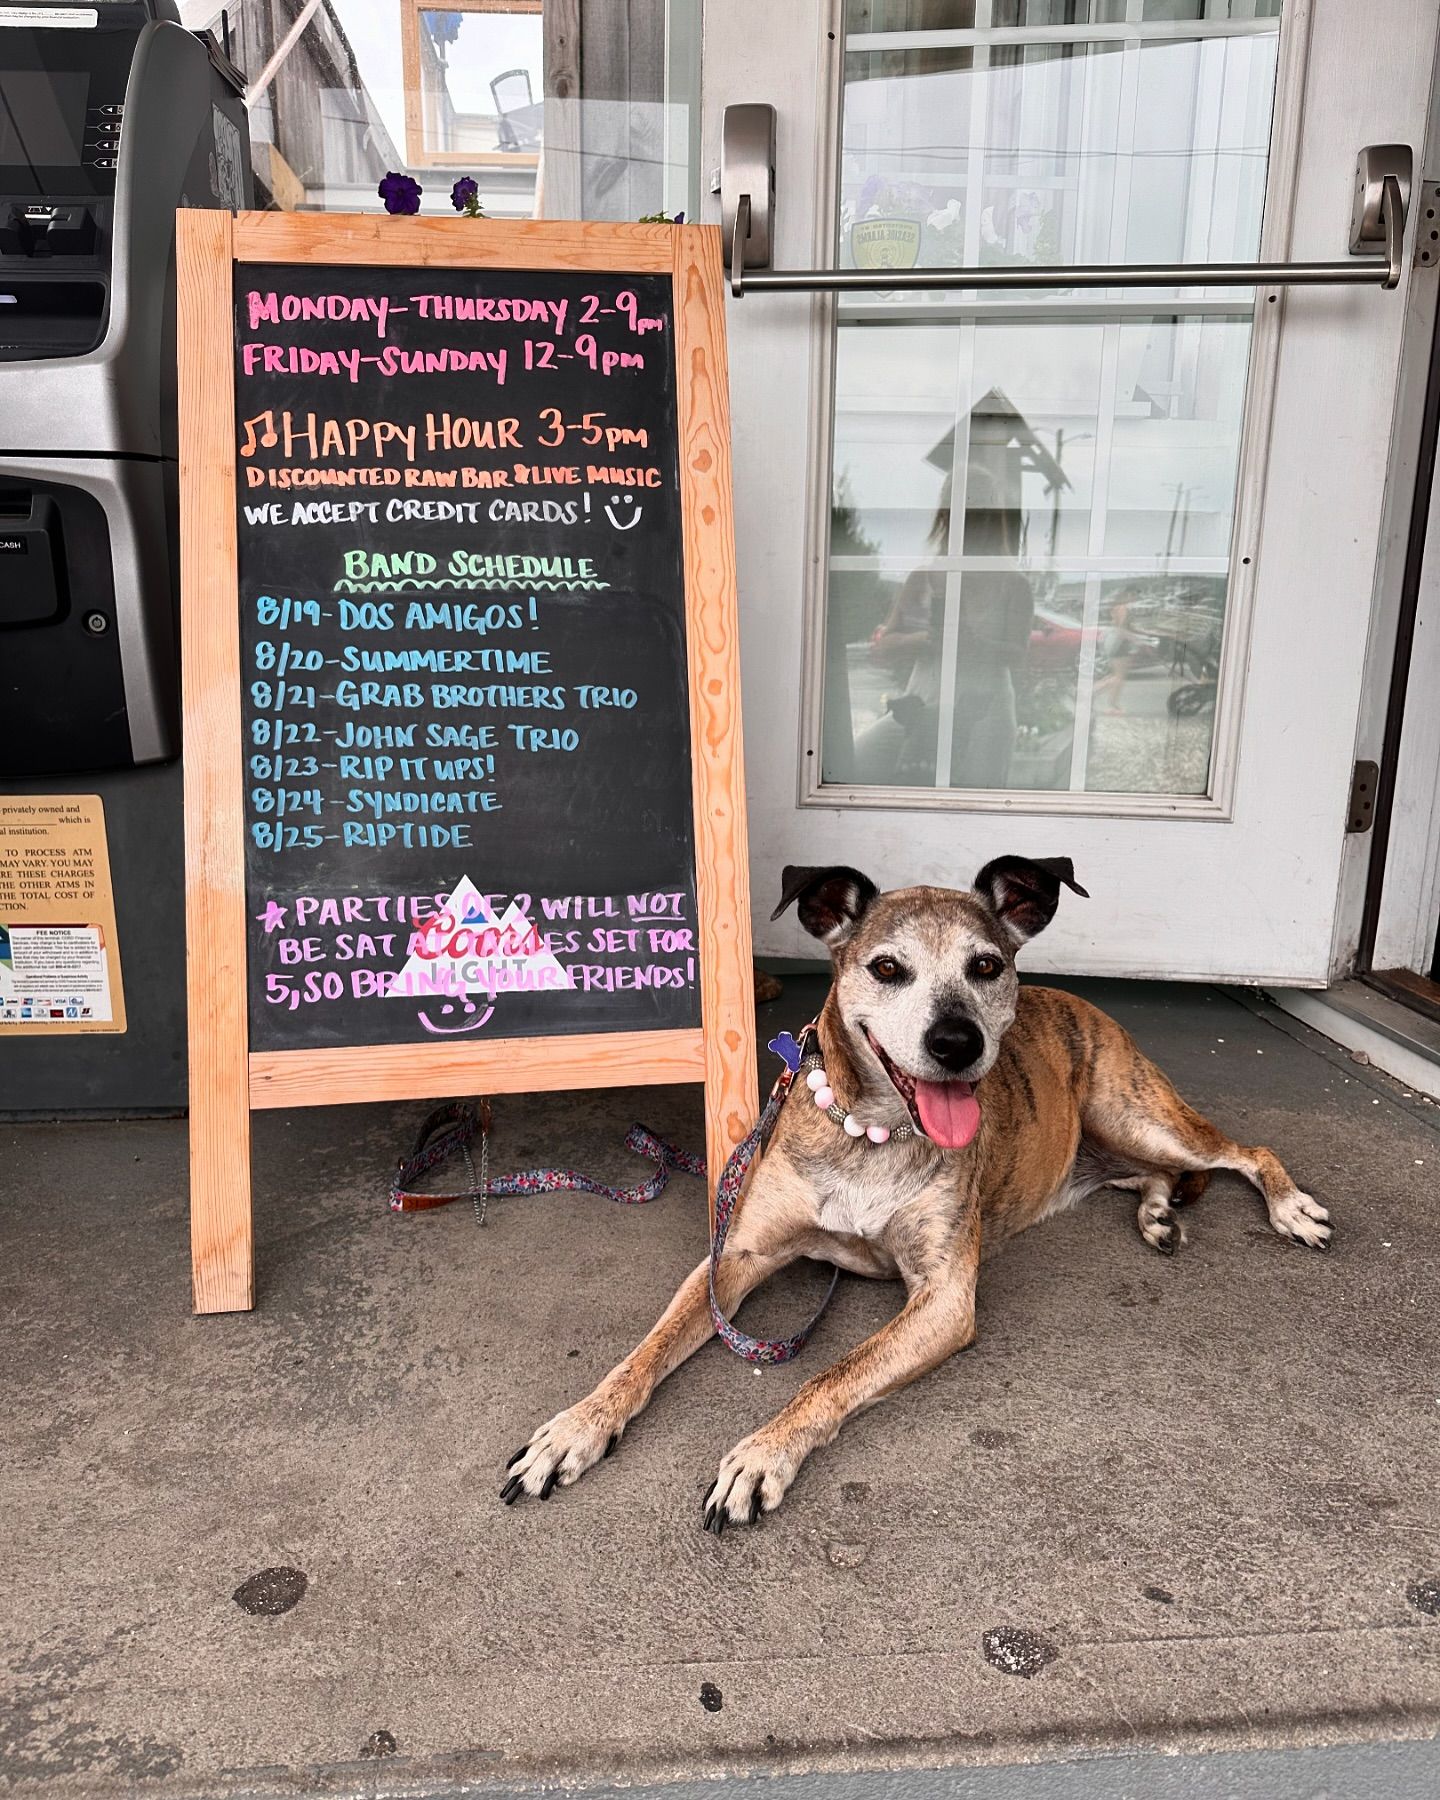 MONDAY-THURSDAY 2-9pm
FRIDAY-SUNDAY 12-9pm
HAPPY HOUR 3-5pm
DISCOUNTED RAW BAR & LIVE MUSIC
WE ACCEPT CREDIT CARDS!
BAND SCHEDULE
8/19-DOS AMIGOS!
8/20-SUMMERTIME
8/21-GRAB BROTHERS TRIO
8/22-JOHN SAGE TRIO
8/23-RIP IT UPS!
8/24-SYNDICATE
8/25-RIPTIDE
PARTIES OF 2 WILL NOT
BE SAT AT TABLES SET FOR
5, SO BRING YOUR FRIENDS!
Coors
LIGHT
CASH
privately owned and
which is
al institution.
TO PROCESS ATM
MAY VARY. YOU MAY
RE THESE CHARGES
THE OTHER ATMS IN
THE TOTAL COST OF
CTION.
FEE NOTICE
SEASIDE ALARMS